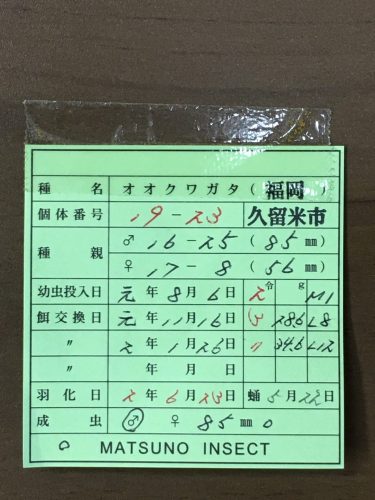 種名 オオクワガタ (福岡
個体番号 19-23 久留米市
種親 ♂ 16-25 (85 mm)
♀ 17-8 (56 mm)
幼虫投入日 元年8月6日 2令 g M1
餌交換日 元年11月16日 3 28.6 L8
〃 2年1月26日 〃 34.6 L12
年 月 日
羽化日 2年6月23日 蛹5月22日
成虫 ♂ ♀ 85mm
MATSUNO INSECT